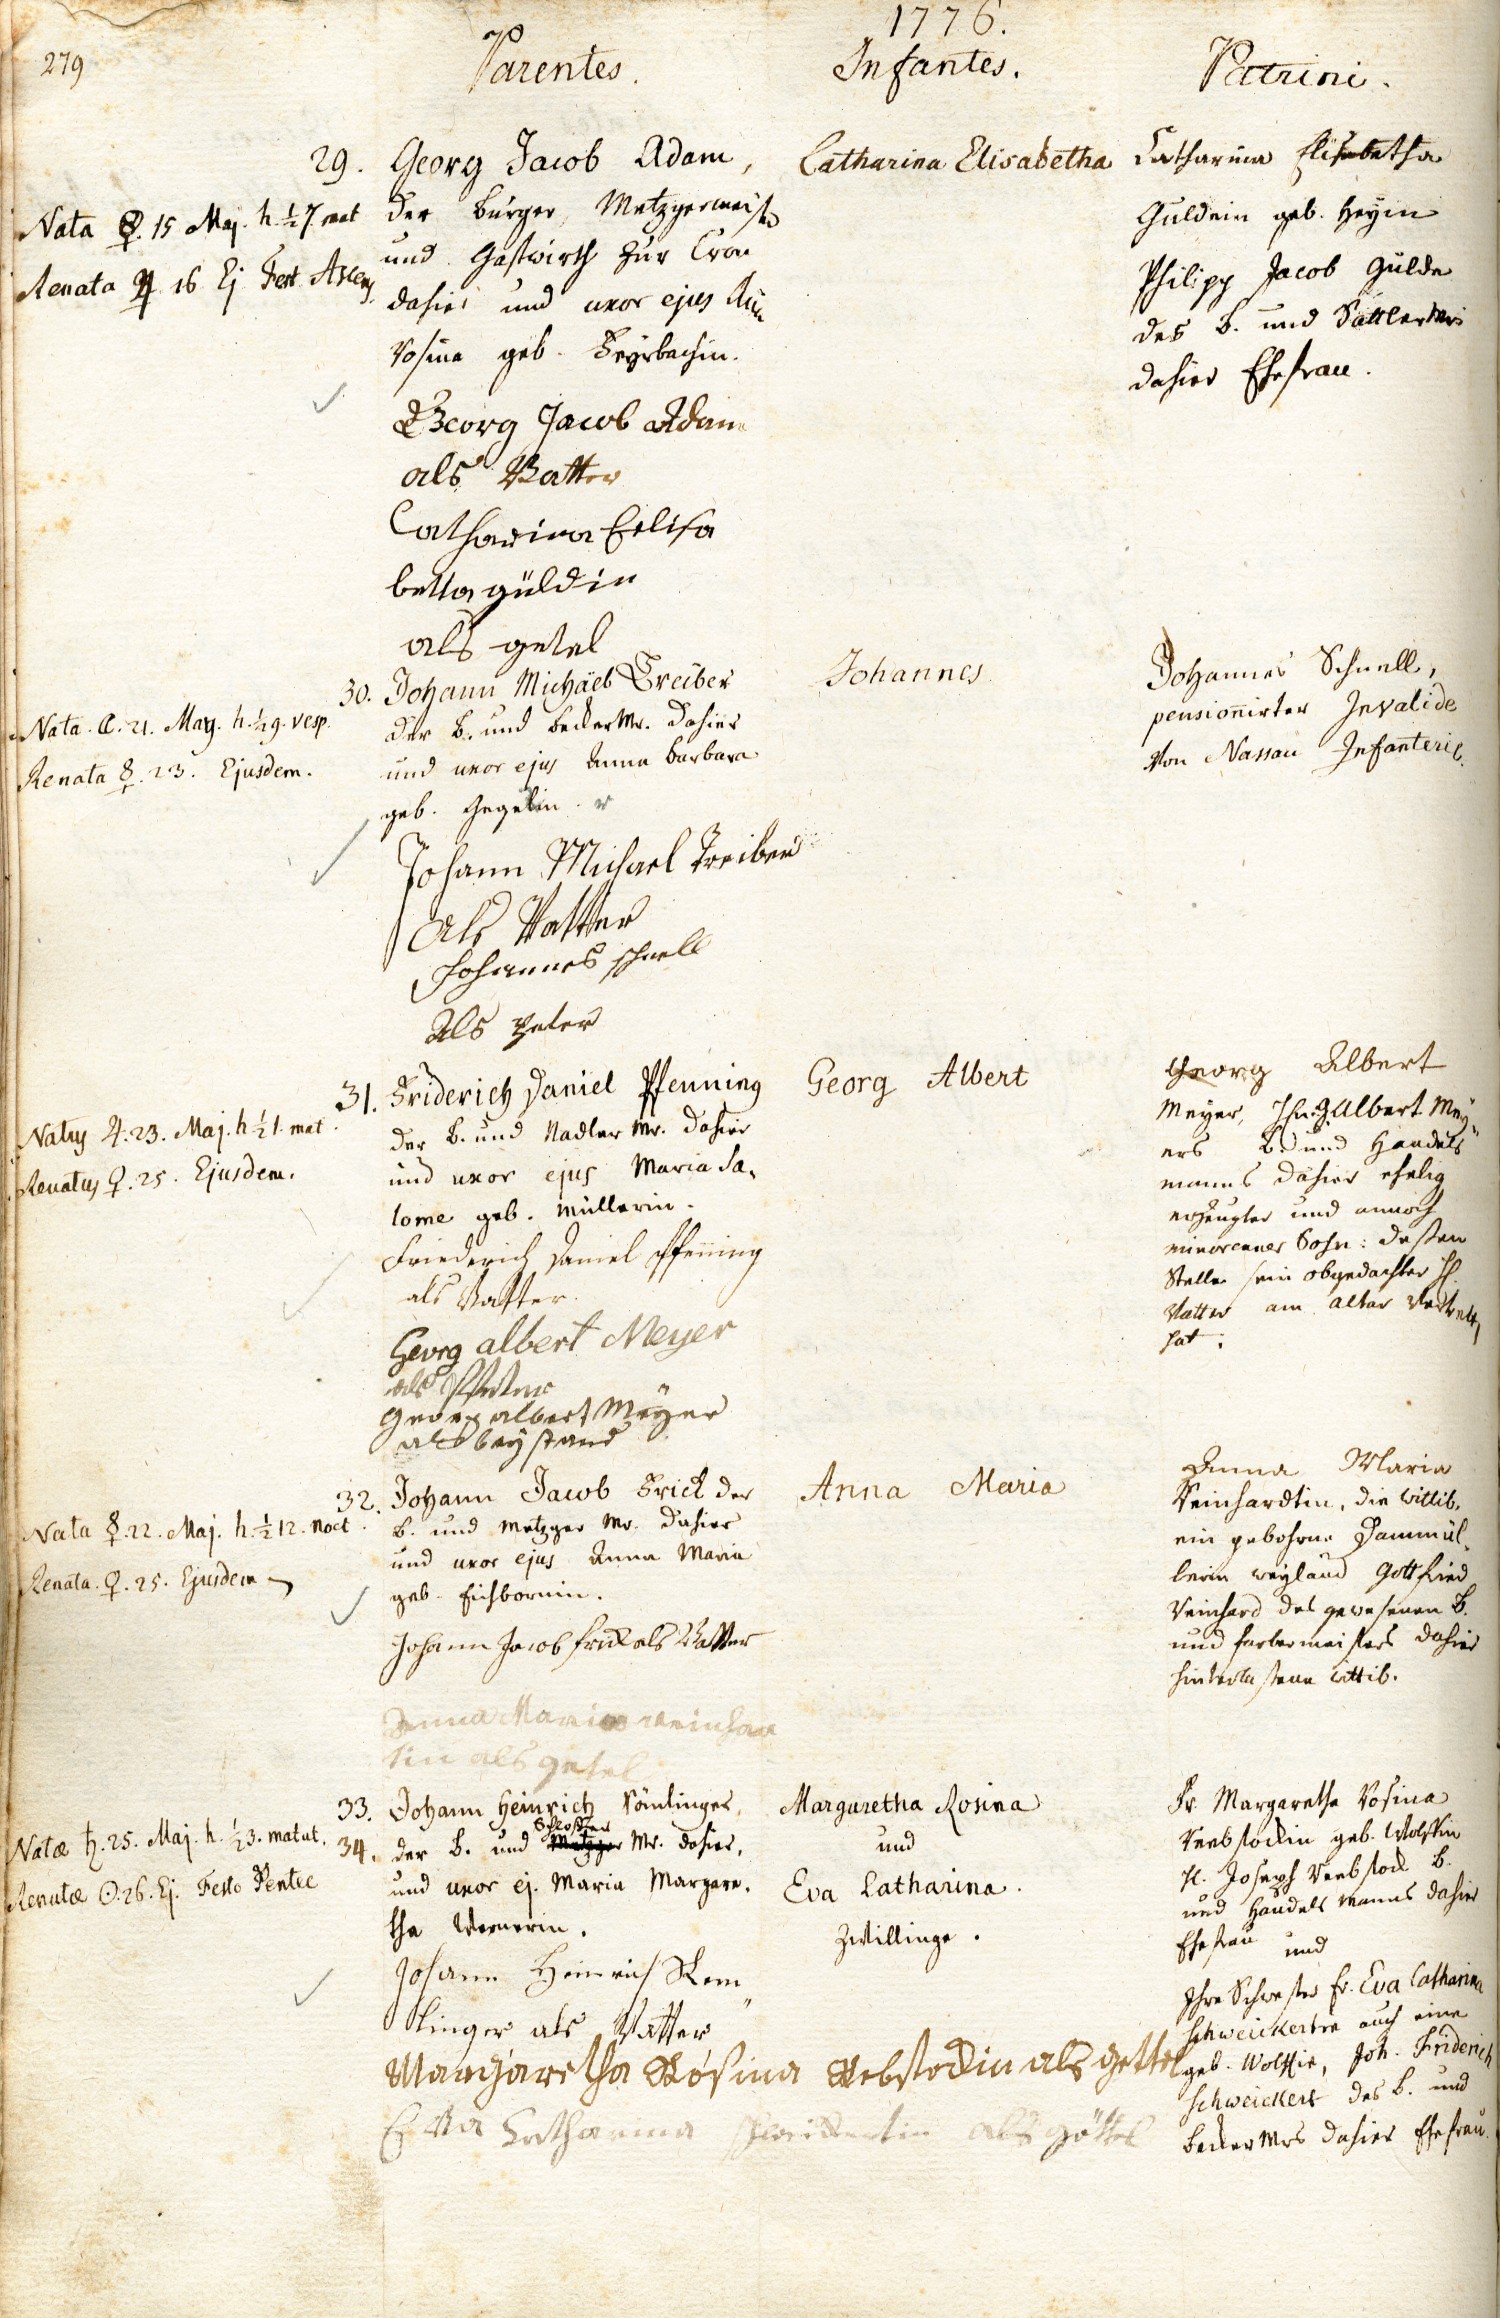 279
1776.
Parentes.
Infantes.
Patrini.
29.
Nata ☿. 15 Maj. h. ½ 7. mat
Renata ♃ 16 Ej Fest Ascens.
Georg Jacob Adam,
der burger, Metzgermeister
und Gastwirth zur Cron
dahier und uxor ejus
Rosina geb.
Georg Jacob Adam
als Vatter
Catharina Eelisa
betta güldin
als getel
Catharina Elisabetha
Catharina Elisabetha
Guldein geb. Heyin
Philipp Jacob Gülde
des b. und Sattlermrs
dahier Ehefrau.
30.
Nata. 21. May. h. ½ 9. vesp.
Renata ☿. 23. Ejusdem.
Johann Michäel Treiber
der b. und beckerMr. dahier
und uxor ejus Anna barbara
geb. Gegelin.
Johann Michael Treiber
als Vatter
Johannes schnell
als Peter
Johannes
Johannes Schnell,
pensionirter Invalide
von Nassau Infanterie.
31.
Natus ♃. 23. Maj. h ½ 1. mat.
Renatus ♀. 25. Ejusdem.
Friderich Daniel Pfenning
der b. und Nadler Mr. dahier
und uxor ejus Maria Sa-
lome geb. Müllerin.
Friederich Daniel Pfenning
als Vatter.
Georg albert Meyer
als Pfetter
Georg albert Meyer
als beystand
Georg Albert
Georg Albert
Meyer, Albert Mey-
ers b. und Handels
manns dahier ehelig
erzeugter und annoch
minorenner Sohn: dessen
Stelle sein obgedachter H
Vatter am altar vertretten
hat.
32.
Nata ☿. 22. Maj. h. ½ 12. noct.
Renata. ♀. 25. Ejusdem
Johann Jacob Frick der
b. und Metzger Mr. dahier
und uxor ejus Anna Maria
geb. Eichbornin.
Johann Jacob frick als Vatter
Anna Maria reinhar
tin als getel
Anna Maria
Anna Maria
Reinhardtin, die Wittib,
ein gebohrne Dammül-
lerin weyland Gottfried
Reinhard des gewesenen b.
und färbermeisters dahier
hinterlassene Wittib.
33.
34.
Natæ ♄. 25. Maj. h. ½ 3. matut.
Renatæ ☉. 26. Ej. Festo Pentec
Johann Heinrich Römlinger,
Schlosser
der b. und Metzger Mr. dahier,
und uxor ej. Maria Margare-
tha Wernerin.
Johann Heinrich Rem
linger als Vatter
Margaretha Rosina Rebstockin als gettel
Eva Catharina als göttel
Margaretha Rosina
und
Eva Catharina.
Zwillinge.
Fr. Margaretha Rosina
Rebstockin geb. Wolffin
H. Joseph Rebstock b.
und Handels Manns dahier
Ehefrau und
Ihre Schwester Fr. Eva Catharina
Schweickertin auch eine
geb. Wolffin, Joh. Friderich
Schweickert des b. und
becker Mrs dahier Ehefrau.